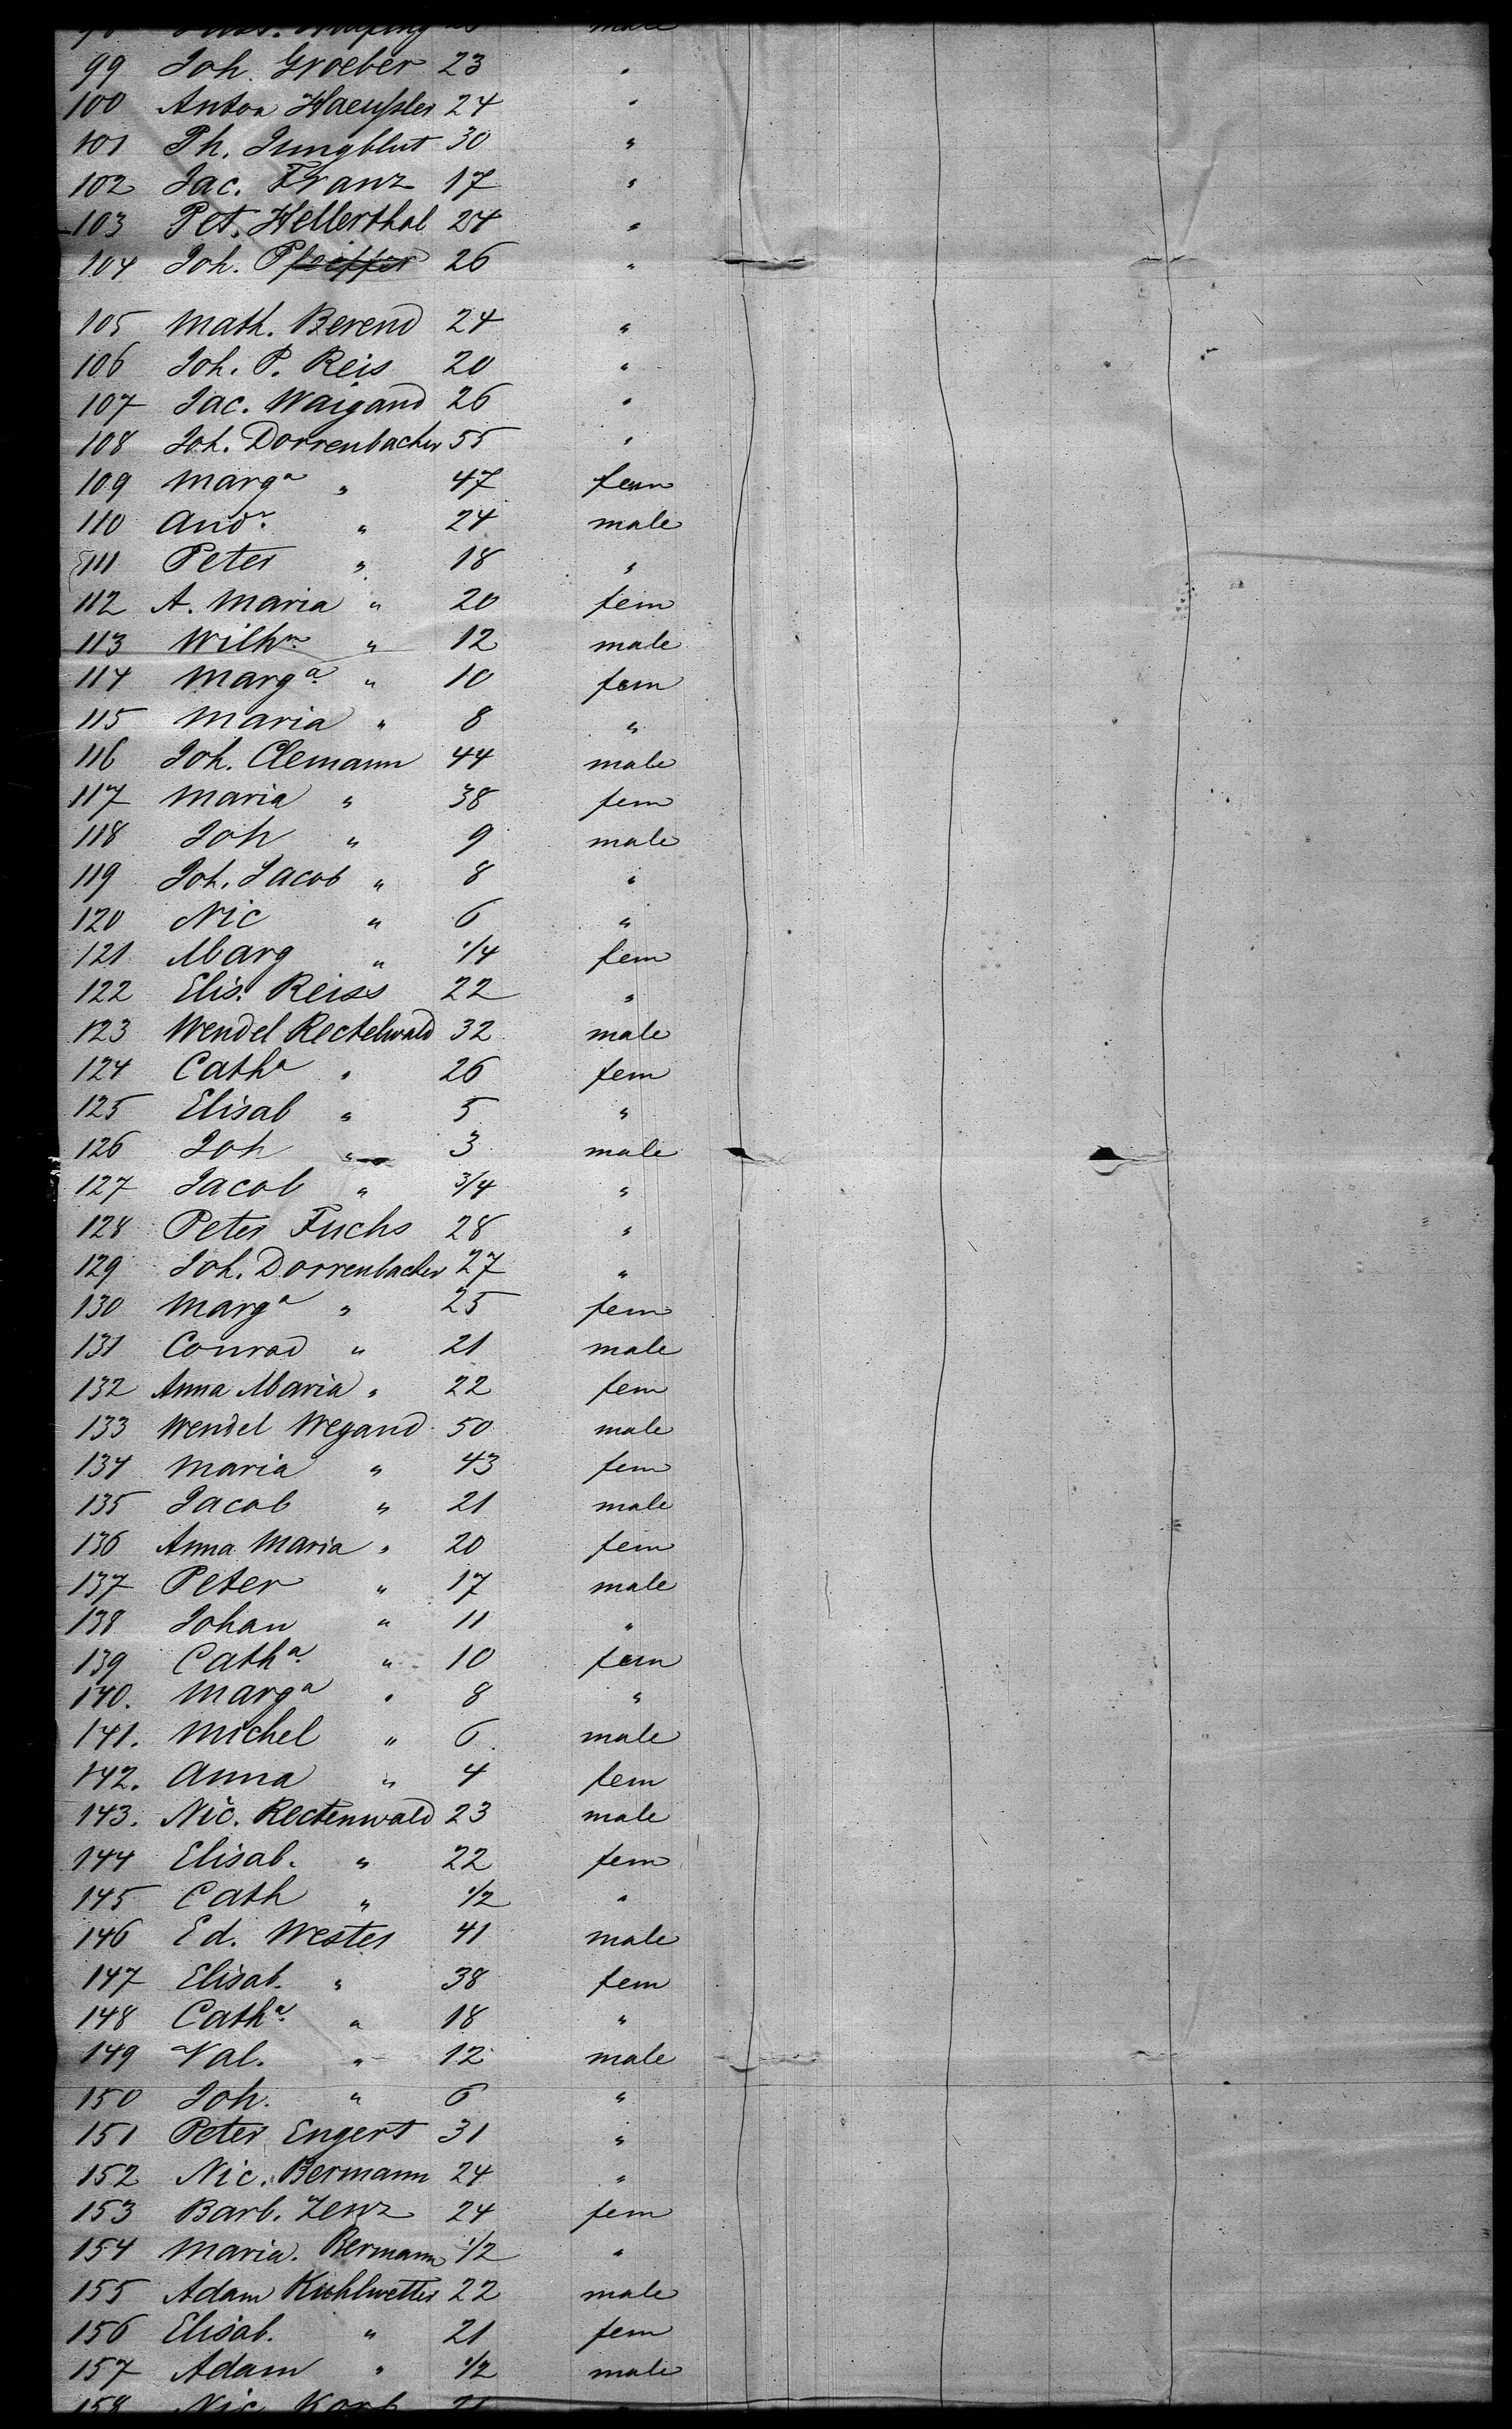 male
99 Joh. Groeber 23 "
100 Anton Haeussler 24 "
101 Ph. Jungblut 30 "
102 Jac. Franz 17 "
103 Pet. Hellerthal 24 "
104 Joh. Pfeiffer 26 "
105 Math. Berend 24 "
106 Joh. P. Reis 20 "
107 Jac. Waigand 26 "
108 Joh. Dorrenbacher 55 "
109 Marga " 47 fem
110 Andr. " 24 male
111 Peter " 18 "
112 A. Maria " 20 fem
113 Wilhm. " 12 male
114 Marga. " 10 fem
115 Maria " 8 "
116 Joh. Clemann 44 male
117 Maria " 38 fem
118 Joh " 9 male
119 Joh. Jacob " 8 "
120 Nic " 6 "
121 Marg " 1/4 fem
122 Elis. Reiss 22 "
123 Wendel Rectelwald 32 male
124 Catha " 26 fem
125 Elisab " 5 "
126 Joh " 3 male
127 Jacob " 3/4 "
128 Peter Fuchs 28 "
129 Joh. Dorrenbacher 27 "
130 Marga " 25 fem
131 Conrad " 21 male
132 Anna Maria " 22 fem
133 Wendel Wegand 50 male
134 Maria " 43 fem
135 Jacob " 21 male
136 Anna Maria " 20 fem
137 Peter " 17 male
138 Johan " 11 "
139 Catha. " 10 fem
140. Marga " 8 "
141. Michel " 6 male
142. Anna " 4 fem
143. Nic. Rectenwald 23 male
144 Elisab. " 22 fem
145 Cath " 1/2 "
146 Ed. Wester 41 male
147 Elisab. " 38 fem
148 Catha. " 18 "
149 Val. " 12 male
150 Joh. " 6 "
151 Peter Engert 31 "
152 Nic. Bermann 24 "
153 Barb. Zenz 24 fem
154 Maria. Bermann 1/2 "
155 Adam Kuhlwetter 22 male
156 Elisab. " 21 fem
157 Adam " 1/2 male
158 Nic